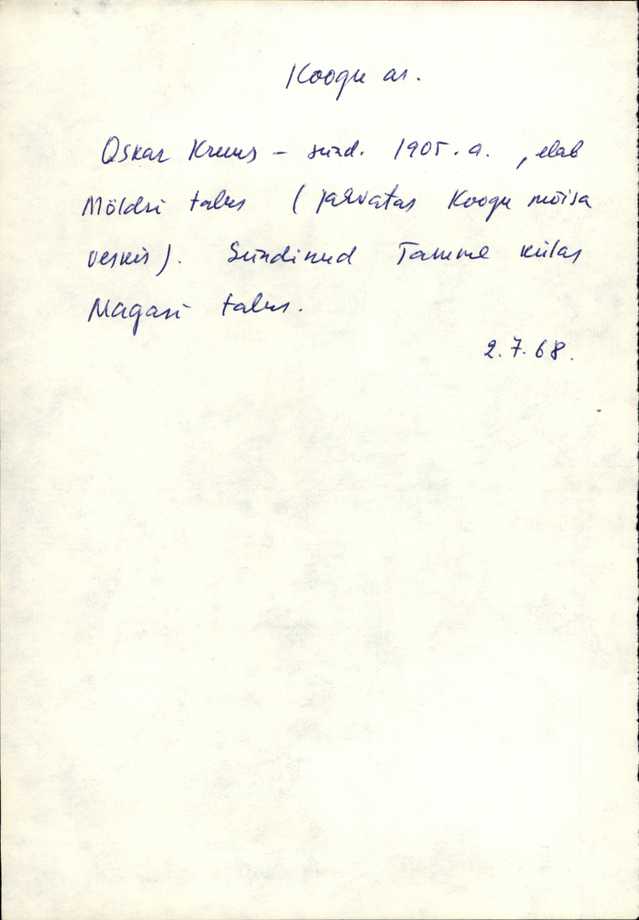 Koogu as.
Oskar Kruus – sünd. 1905. a., elab
Möldri talus (jahvatas Koogu mõisa
veskis). Sündinud Tamme külas
Magasi talus.
2.7.68.